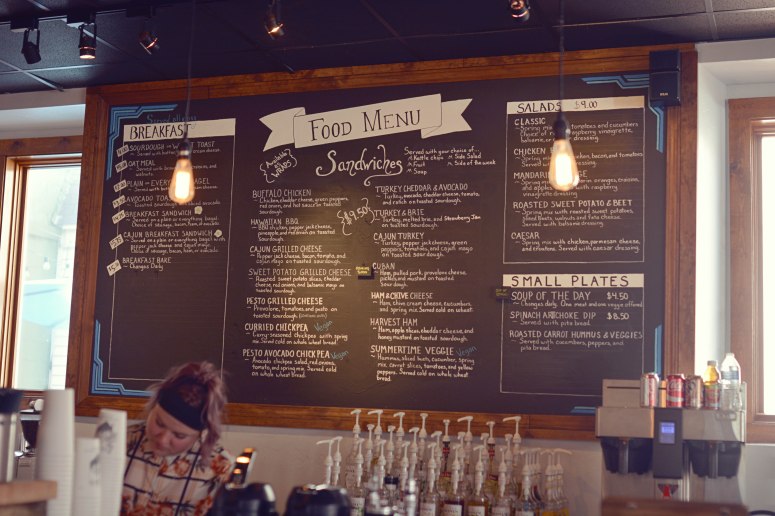 Served all day
BREAKFAST
SOURDOUGH or WHEAT TOAST
Served with butter
OATMEAL
Served with
walnuts.
PLAIN or EVERYTHING BAGEL
Served with cream cheese
AVOCADO TOAST
BREAKFAST SANDWICH
Served on a plain or everything bagel.
Choice of sausage, bacon, ham, or avocado.
CAJUN BREAKFAST SANDWICH
Served on a plain or everything bagel with
pepper jack cheese and cajun mayo. Choice
of sausage, bacon, ham, or avocado.
BREAKFAST BAKE
Changes Daily
FOOD MENU
Available
as
WRAPS
Sandwiches
Served with your choice of...
Kettle chips
Side Salad
Fruit
Side of the week
Soup
$9.50
BUFFALO CHICKEN
Chicken, cheddar cheese, green peppers,
red onion, and hot sauce on toasted
sourdough.
HAWAIIAN BBQ
BBQ chicken, pepper jack cheese,
pineapple, and red onion on toasted
sourdough.
CAJUN GRILLED CHEESE
Pepper jack cheese, bacon, tomato, and
cajun mayo on toasted sourdough.
SWEET POTATO GRILLED CHEESE
Roasted sweet potato slices, cheddar
cheese, red onion, and balsamic mayo on
toasted sourdough.
PESTO GRILLED CHEESE
Provolone, tomatoes, and pesto on
toasted sourdough.
CURRIED CHICKPEA Vegan
Curry-seasoned chickpeas with spring
mix. Served cold on whole wheat bread.
PESTO AVOCADO CHICKPEA Vegan
Avocado chickpea salad, red onions,
tomato, and spring mix. Served
cold on whole wheat bread.
TURKEY CHEDDAR & AVOCADO
Turkey, avocado, cheddar cheese, tomato,
and ranch on toasted sourdough.
TURKEY & BRIE
Turkey, melted brie, and Strawberry Jam
on toasted sourdough.
CAJUN TURKEY
Turkey, pepper jack cheese, green
peppers, tomatoes, and cajun mayo
on toasted sourdough.
CUBAN
Ham, pulled pork, provolone cheese,
pickles, and mustard on toasted
sourdough.
HAM & CHIVE CHEESE
Ham, chive cream cheese, cucumber,
and spring mix. Served cold on wheat.
HARVEST HAM
Ham, apple slices, cheddar cheese, and
honey mustard on toasted sourdough.
SUMMERTIME VEGGIE Vegan
Hummus, sliced beets, cucumber, spring
mix, carrot slices, tomatoes, and yellow
peppers. Served cold on whole wheat
bread.
SALADS $9.00
CLASSIC
Spring mix, tomatoes, and cucumbers
Choice of raspberry vinaigrette,
balsamic, or
CHICKEN
Spring mix, chicken, bacon, and tomatoes.
Served with
MANDARIN
Spring mix, oranges, craisins,
and with raspberry
vinaigrette.
ROASTED SWEET POTATO & BEET
Spring mix with roasted sweet potatoes,
sliced beets, walnuts and feta cheese.
Served with balsamic dressing.
CAESAR
Spring mix with chicken, parmesan cheese,
and croutons. Served with Caesar dressing
SMALL PLATES
SOUP OF THE DAY $4.50
Changes daily. One meat and one veggie offered.
SPINACH ARTICHOKE DIP $8.50
Served with pita bread.
ROASTED CARROT HUMMUS & VEGGIES
Served with cucumbers, peppers, and
pita bread.